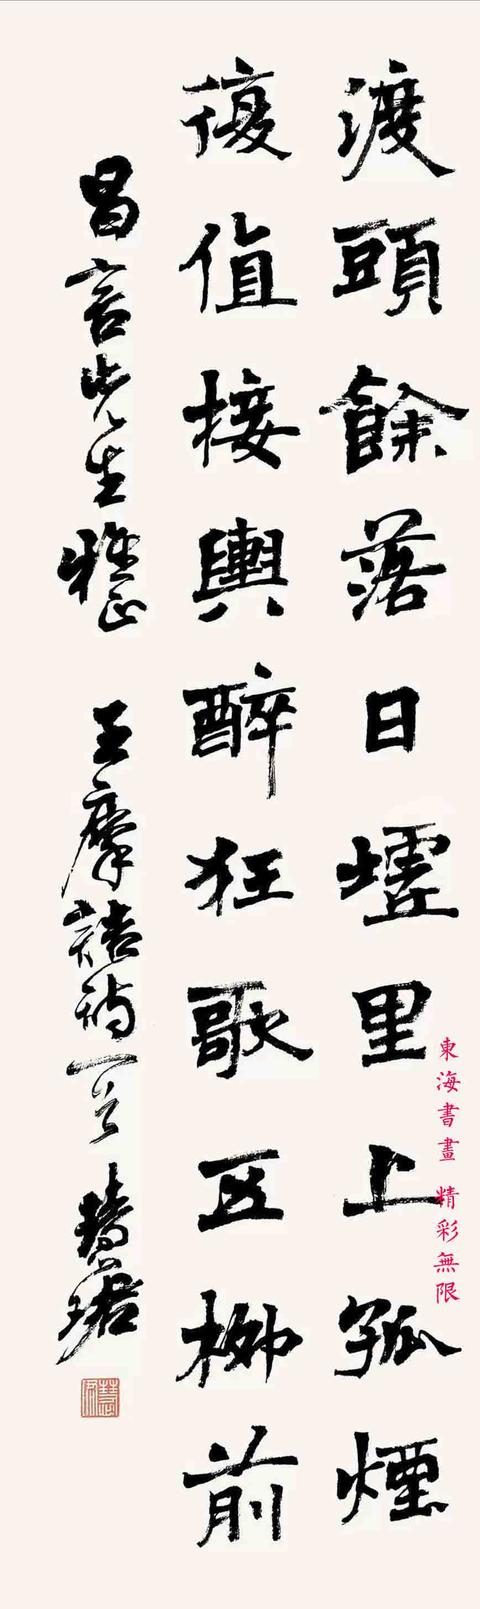 渡頭餘落日墟里上孤煙
復值接輿醉狂歌五柳前
昌言先生雅正 王摩詰詩一首 慧珺
東海書畫 精彩無限